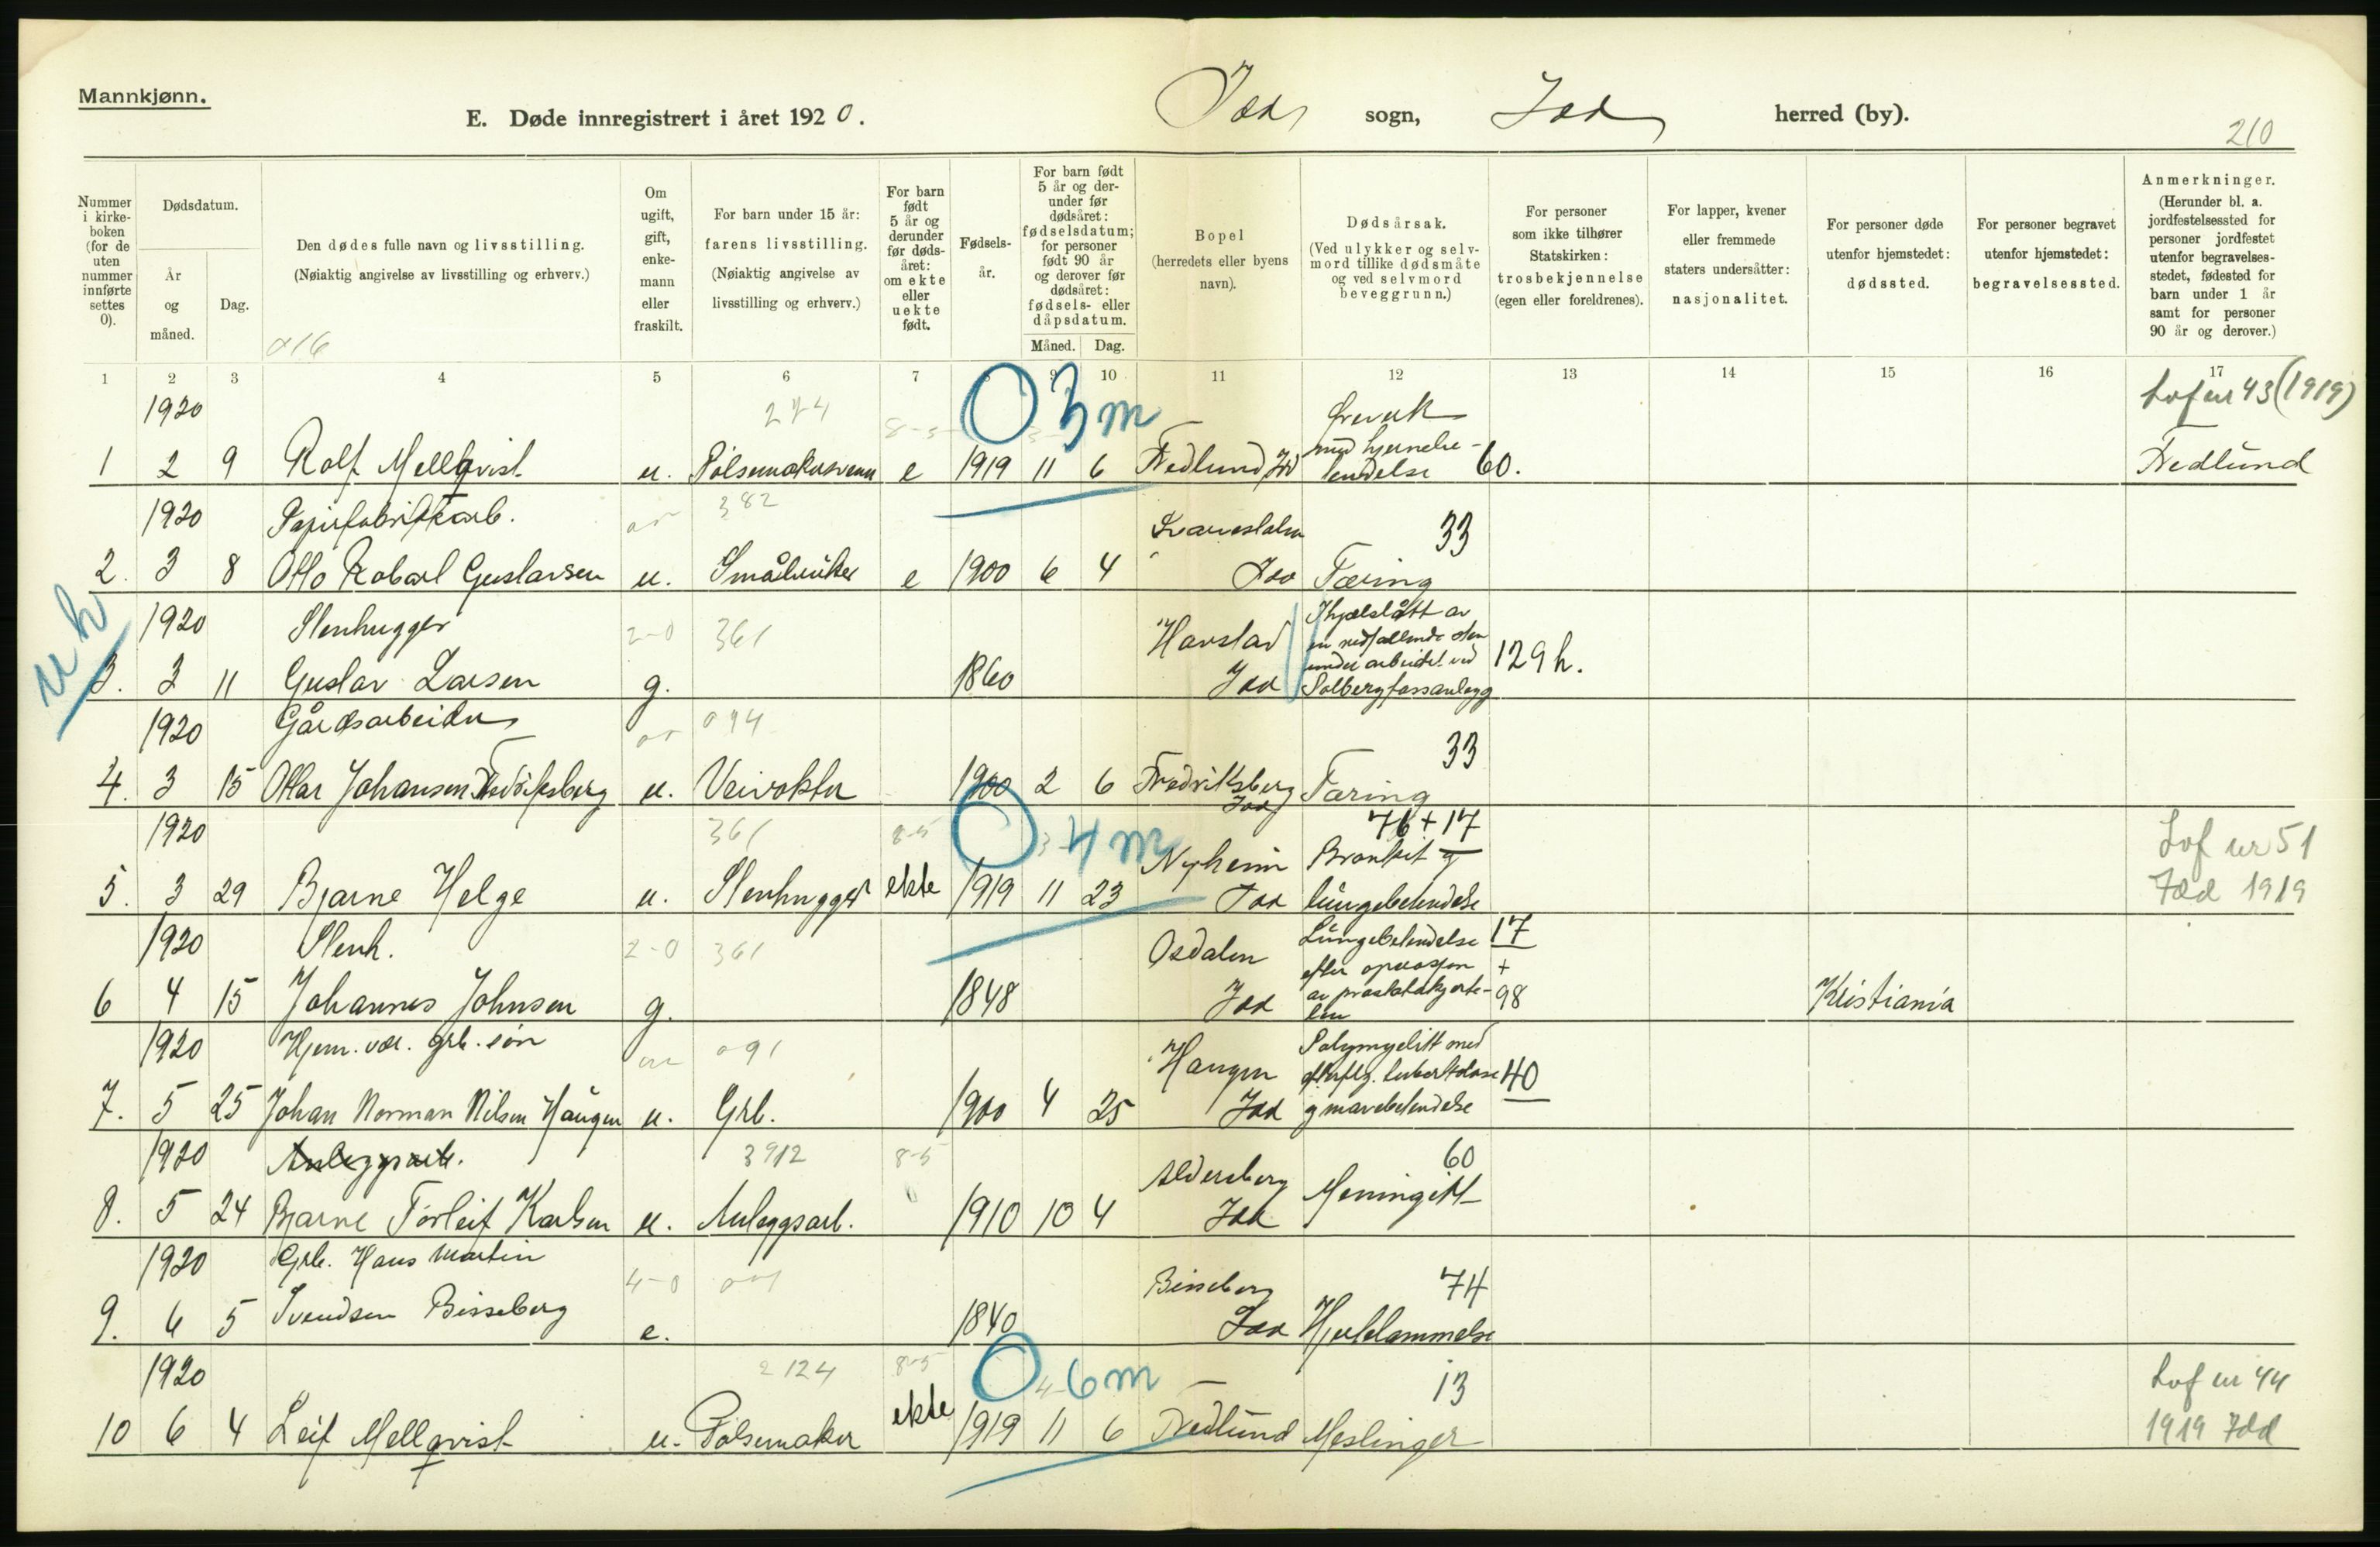 Mannkjønn.
E. Døde innregistrert i året 1920.
Idd sogn, Idd herred (by).
210
Nummer i kirkeboken (for de uten nummer innførte settes 0).
Dødsdatum.
År og måned.
Dag.
Den dødes fulle navn og livsstilling.
(Nøiaktig angivelse av livsstilling og erhverv.)
016
Om ugift, gift, enkemann eller fraskilt.
For barn under 15 år: farens livsstilling.
(Nøiaktig angivelse av livsstilling og erhverv.)
For barn født 5 år og derunder før dødsåret: om ekte eller uekte født.
Fødselsår.
For barn født 5 år og derunder før dødsåret: fødselsdatum; for personer født 90 år og derover før dødsåret: fødsels- eller dåpsdatum.
Måned. Dag.
Bopel
(herredets eller byens navn).
Dødsårsak.
(Ved ulykker og selvmord tillike dødsmåte og ved selvmord beveggrunn.)
For personer som ikke tilhører Statskirken: trosbekjennelse (egen eller foreldrenes).
For lapper, kvener eller fremmede staters undersåtter: nasjonalitet.
For personer døde utenfor hjemstedet: dødssted.
For personer begravet utenfor hjemstedet: begravelsessted.
Anmerkninger.
(Herunder bl. a. jordfestelsessted for personer jordfestet utenfor begravelsesstedet, fødested for barn under 1 år samt for personer 90 år og derover.)
1 2 3 4 5 6 7 8 9 10 11 12 13 14 15 16 17
1920 274 8-5 0 3 m Lof nr 43 (1919)
1 2 9 Rolf Mellqvist u. Pølsemakersvenn e 1919 11 6 Fredlund Idd med hjernebetendelse 60. Fredlund
1920 Papirfabrikkarb. 382
2. 3 8 Otto Robarl Gustavsen u. Småbruker e 1900 6 4 Idd Tæring 33
uh
1920 Stenhugger 2-0 361
3. 3 11 Gustav Larsen g. 1860 Havstad Idd Ihjelslått av en nedfallende sten under arbeidet ved Solbergfossanlegg 129 h.
1920 Gårdsarbeider 094
4. 3 15 Ottar Johansen Fredriksberg u. Veivokter 1900 2 6 Fredriksberg Idd Tæring 33
1920 361 8-5 0 4 m 76+17 Lof nr 51
5. 3 29 Bjarne Helge u. Stenhugger ekte 1919 11 23 Nyheim Idd Bronkit g lungebetendelse Idd 1919
1920 Stenh. 2-0 361
6 4 15 Johannes Johnsen g. 1848 Osdalen Idd Lungebetendelse efter operasjon av prostatakjertelen 17 + 98 Kristiania
1920 Hjem. vær. grb. søn 091
7. 5 25 Johan Norman Nilsen Haugen u. Grb. 1900 4 25 Haugen Idd Polymyelitt med efterflg. tuberkulose g mavebetendelse 40
1920 Anleggsarb. 3912 8-5
8. 5 24 Bjarne Torleif Karlsen u. Anleggsarb. 1910 10 4 Aldersberg Idd Meningitt 60
1920 Grb. Hans Martin 4-0 091
9. 6 5 Svendsen Bisseberg e. 1840 Bisseberg Idd Hjertelammelse 74
1920 2124 8-5 0 4- 6 m 13 Lof nr 44
10 6 4 Leif Mellqvist u. Pølsemaker ekte 1919 11 6 Fredlund Meslinger 1919 Idd